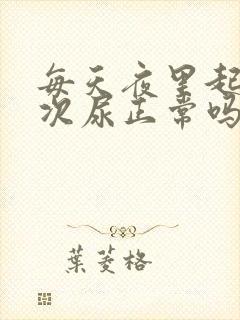 每天夜里起
次尿正常吗
葉菱格